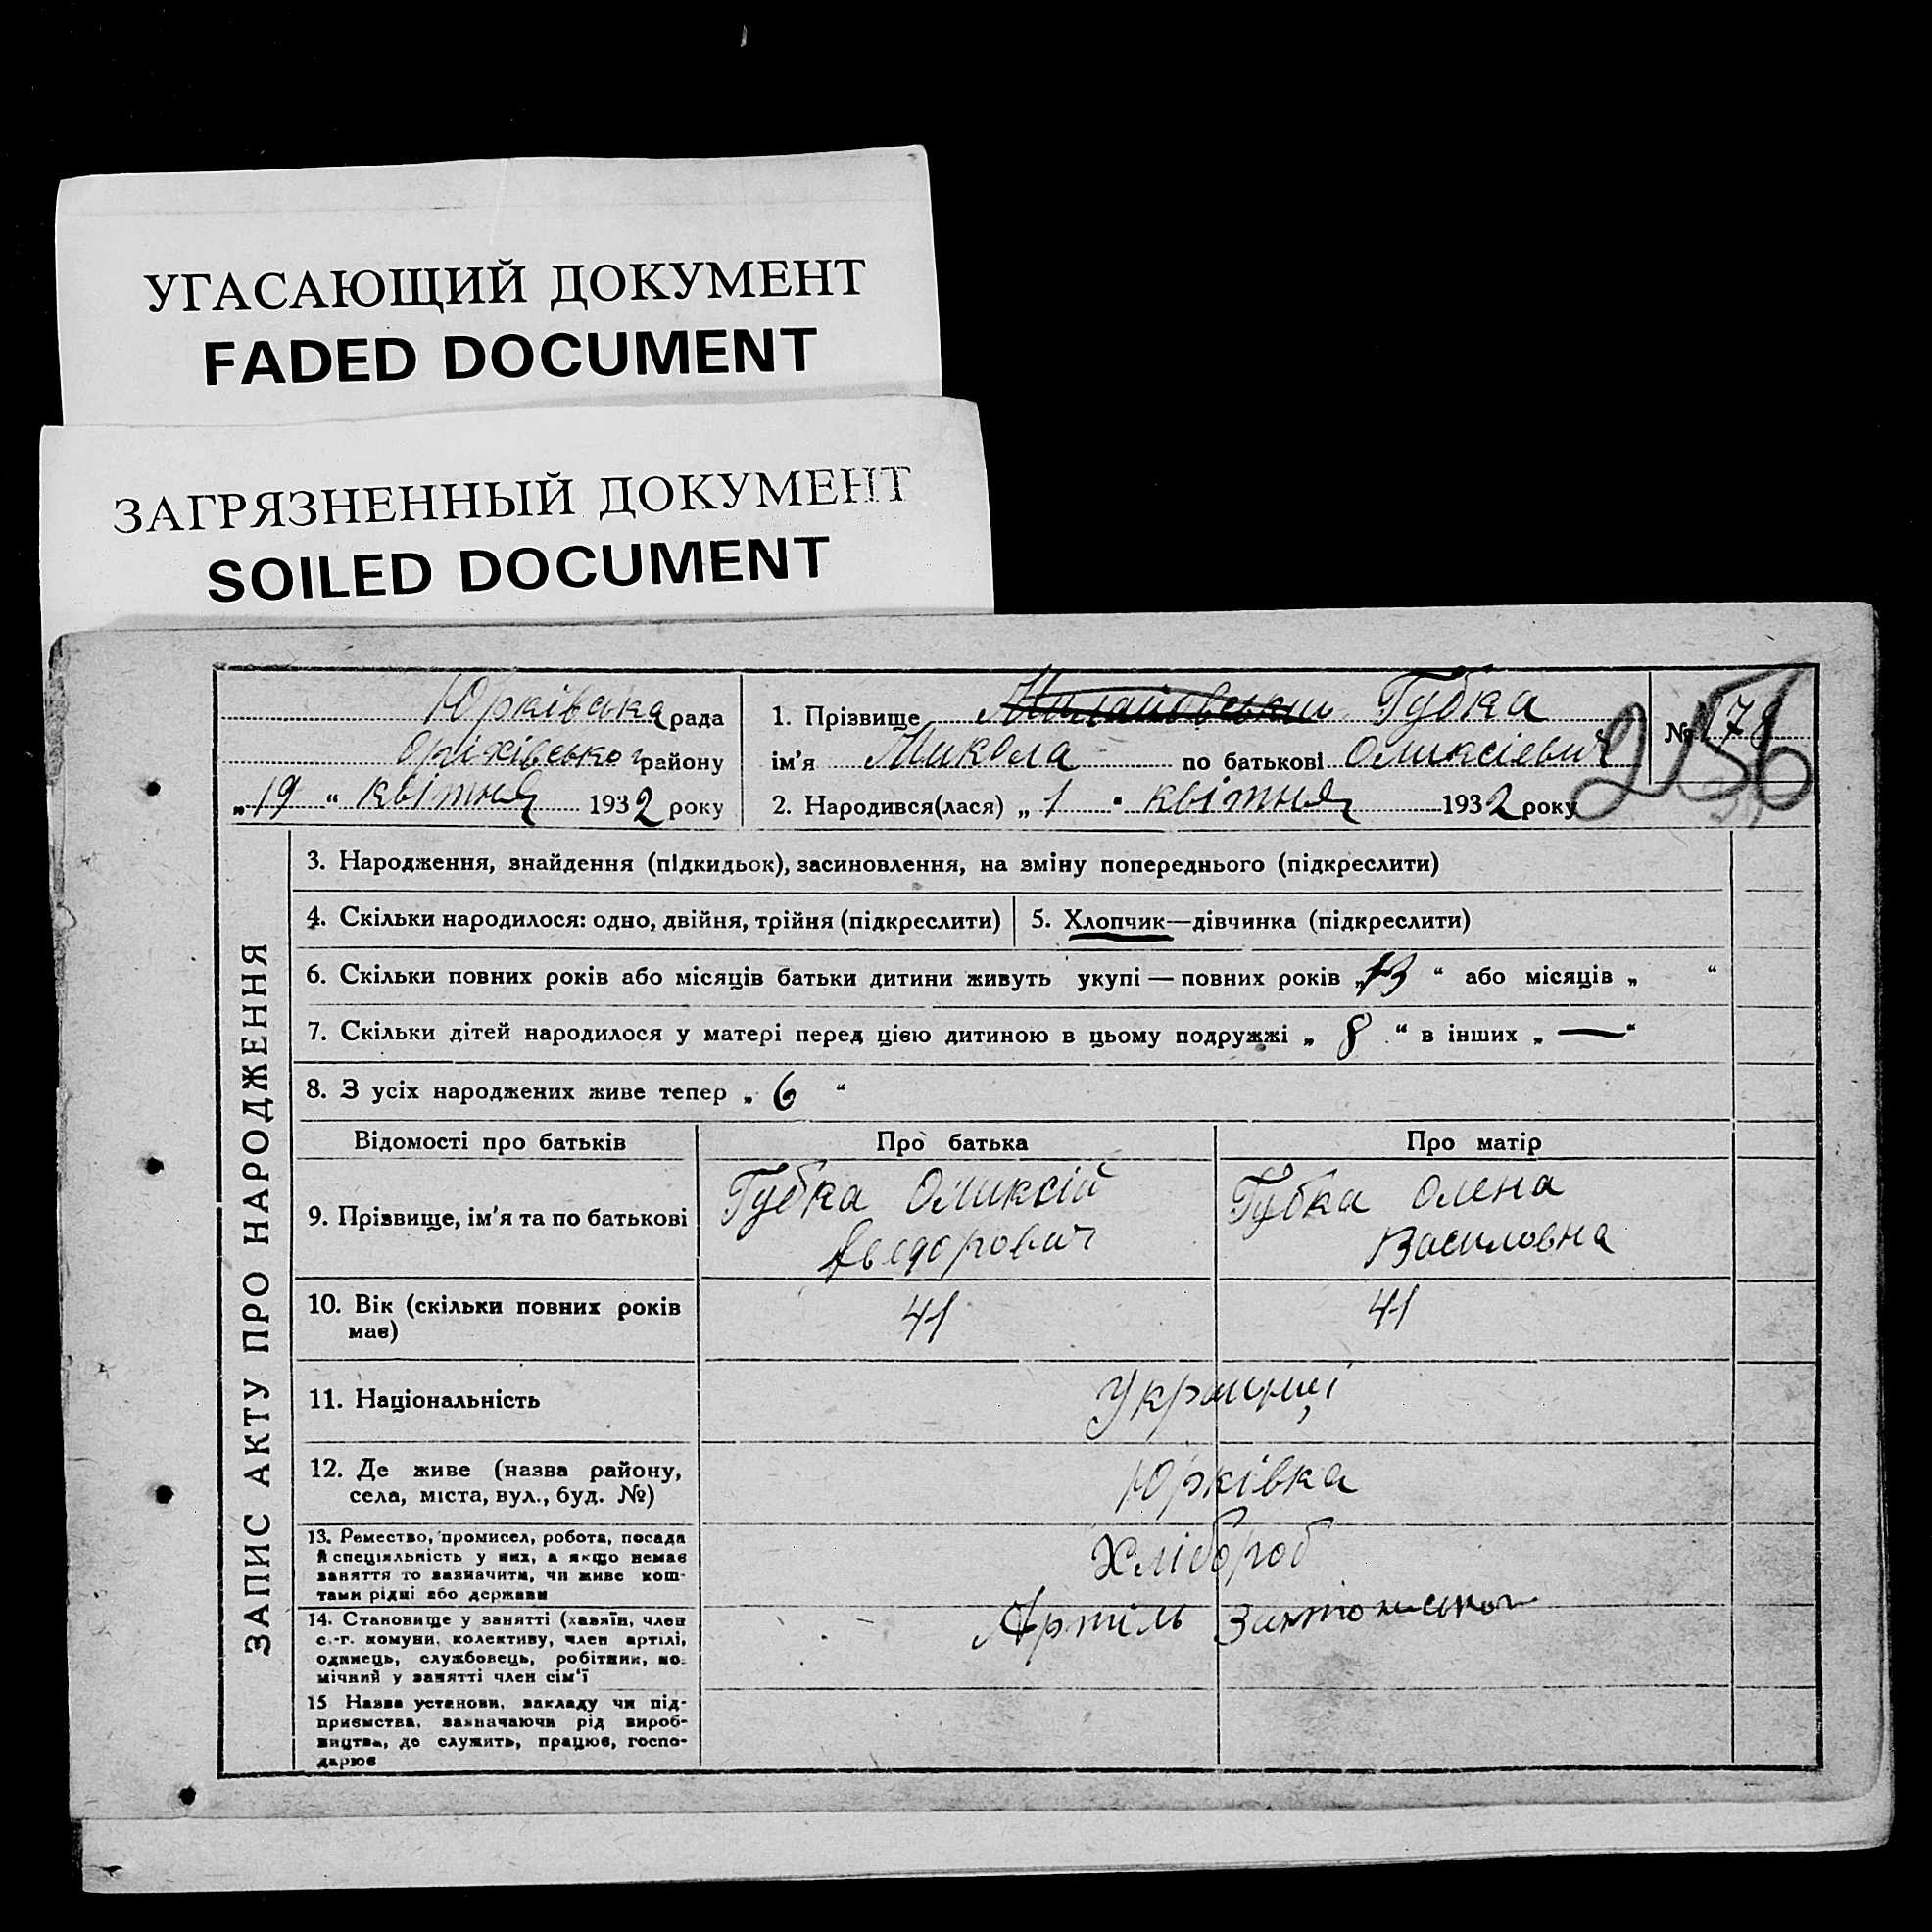 УГАСАЮЩИЙ ДОКУМЕНТ
FADED DOCUMENT
ЗАГРЯЗНЕННЫЙ ДОКУМЕНТ
SOILED DOCUMENT
Юрківська рада
Оріхівського району
„19“ квітня 1932 року
1. Прізвище Губка
ім’я Микола по батькові Оликсіевич
2. Народився(лася) „1“ квітня 1932 року
№ 178
256
ЗАПИС АКТУ ПРО НАРОДЖЕННЯ
3. Народження, знайдення (підкидьок), засиновлення, на зміну попереднього (підкреслити)
4. Скільки народилося: одно, двійня, трійня (підкреслити)
5. Хлопчик—дівчинка (підкреслити)
6. Скільки повних років або місяців батьки дитини живуть укупі — повних років „13“ або місяців „ “
7. Скільки дітей народилося у матері перед цією дитиною в цьому подружжі „8“ в інших „—“
8. З усіх народжених живе тепер „6“
Відомості про батьків Про батька Про матір
9. Прізвище, ім’я та по батькові
Губка Оликсій
Губка Олена
Василовна
10. Вік (скільки повних років
має)
41 41
11. Національність
Українці
12. Де живе (назва району,
села, міста, вул., буд. №)
Юрківка
13. Ремество, промисел, робота, посада
й спеціяльність у них, а якщо немає
заняття то зазначити, чи живе кош-
тами рідні або держави
Хлібороб
14. Становище у занятті (хазяїн, член
с.-г. комуни, колективу, член артілі,
одинець, службовець, робітник, по-
мічний у занятті член сім’ї
Артіль
15 Назва установи, закладу чи під-
приємства, зазначаючи рід вироб-
ництва, де служить, працює, госпо-
дарює